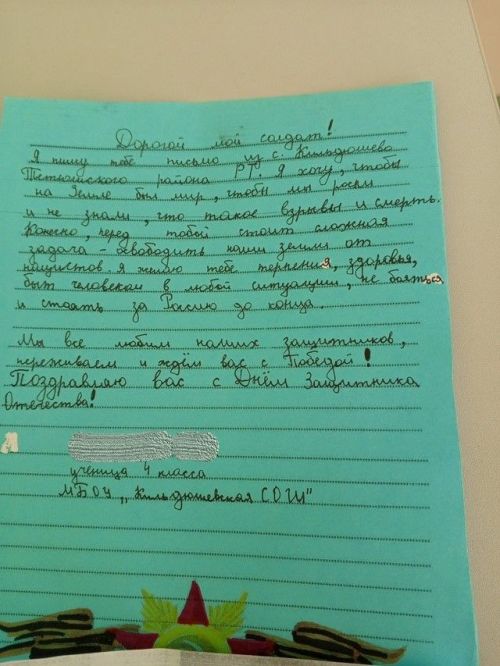 Дорогой мой солдат!
Я пишу тебе письмо из с. Кильдюшево
Тетюшского района РТ. Я хочу, чтобы
на Земле был мир, чтобы мы росли
и не знали, что такое взрывы и смерть.
Конечно, перед тобой стоит сложная
задача - освободить наши земли от
нацистов. Я желаю тебе терпения, здоровья,
быть человеком в любой ситуации, не бояться
и стоять за Россию до конца.
Мы все любим наших защитников,
переживаем и ждём вас с Победой!
Поздравляю вас с Днём Защитника
Отечества!
ученица 4 класса
МБОУ „Кильдюшевская СОШ"